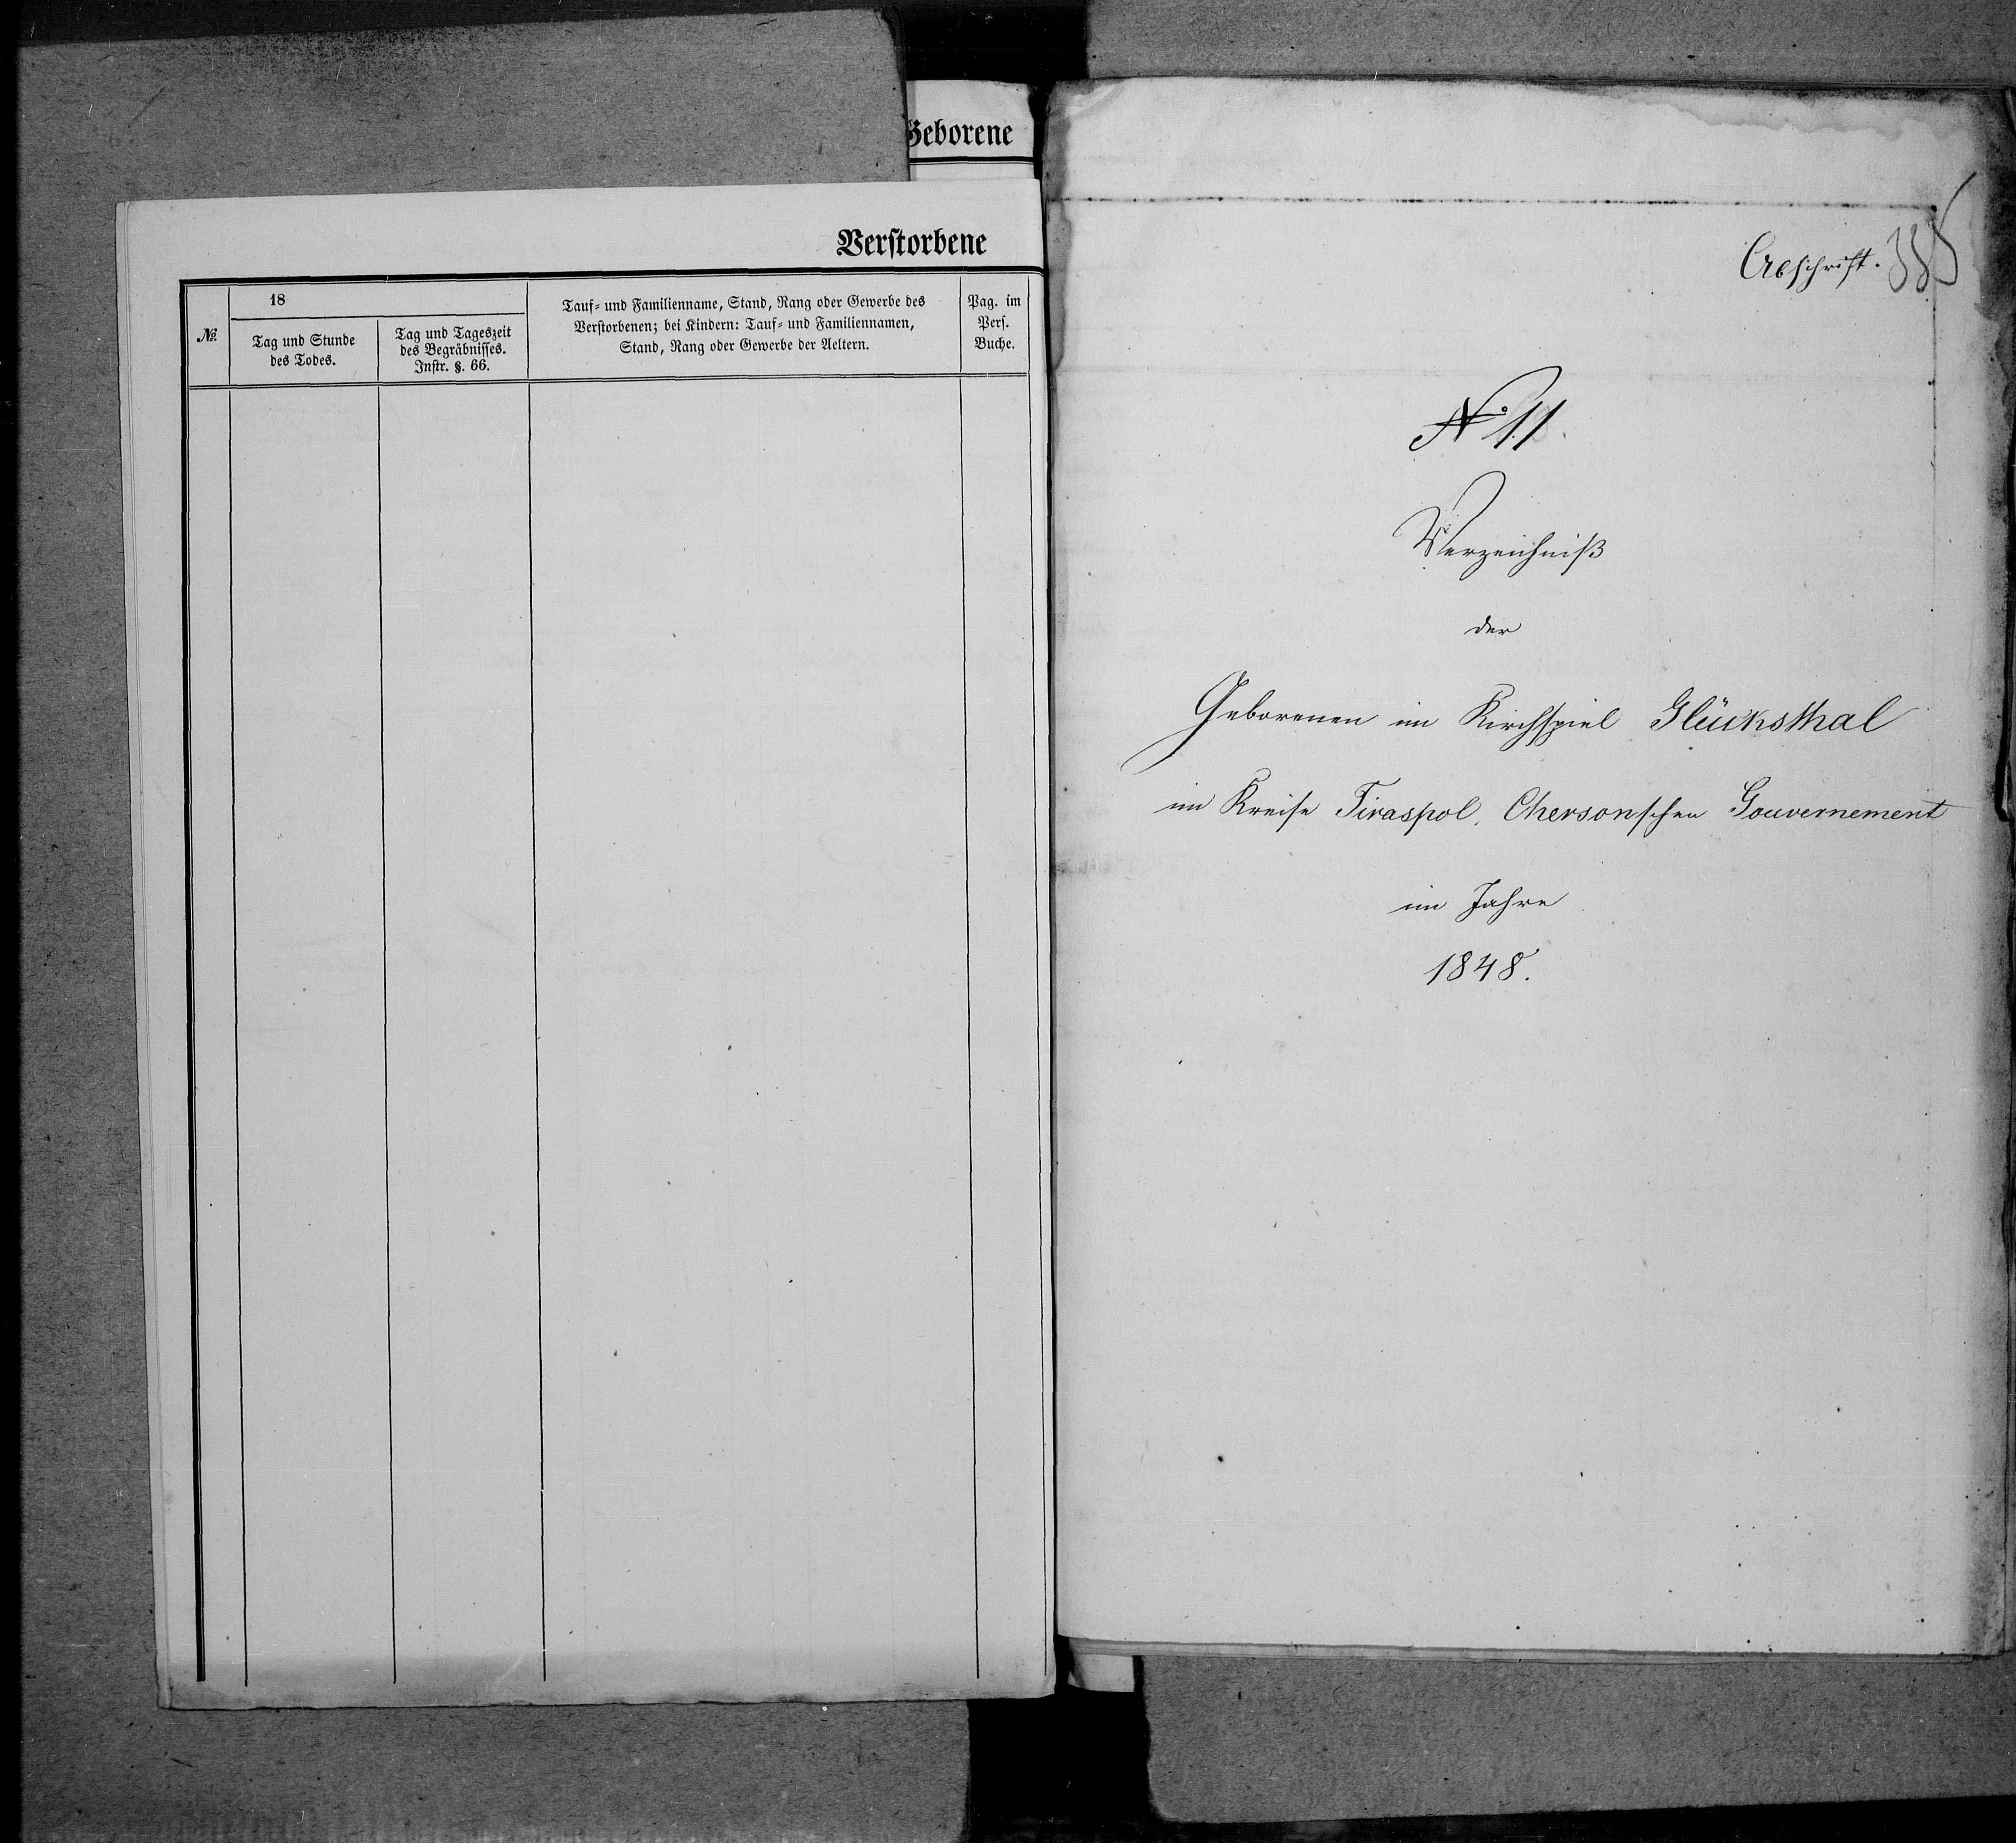 Geborene
Verstorbene
№.
18
Tag und Stunde
des Todes.
Tag und Tageszeit
des Begräbnisses.
Instr. §. 66.
Tauf- und Familienname, Stand, Rang oder Gewerbe des
Verstorbenen; bei Kindern: Tauf- und Familiennamen,
Stand, Rang oder Gewerbe der Aeltern.
Pag. im
Pers.
Buche.
Abschrift. 385
N° 11.
Verzeichniß
der
Geborenen im Kirchspiel Glücksthal
im Kreise Tiraspol, Chersonschen Gouvernement
im Jahre
1848.